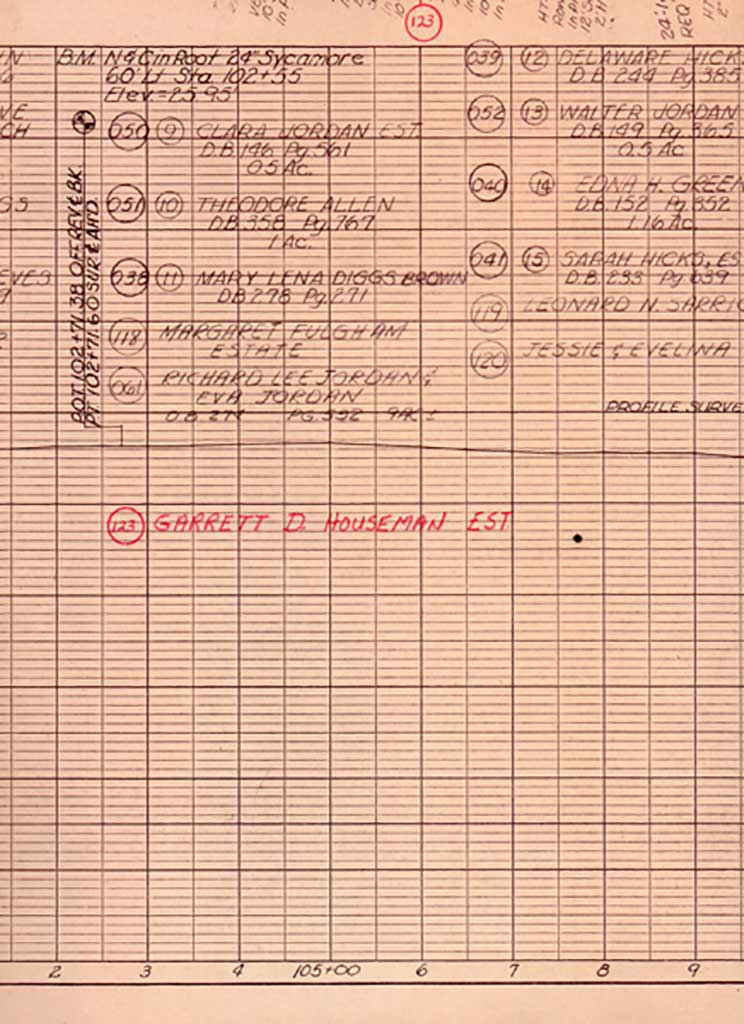 123
B.M. N&C in Root 24" Sycamore
60' Lt Sta. 102+55
Elev=25.95'
050 9 CLARA JORDAN EST.
D.B. 146 Pg. 561
0.5 Ac.
051 10 THEODORE ALLEN
D.B. 358 Pg. 767
1 Ac.
038 11 MARY LENA DIGGS BROWN
D.B. 278 Pg. 271
118 MARGARET FULGHAM
ESTATE
061 RICHARD LEE JORDAN &
EVA JORDAN
D.B. 274 PG. 592 9AC ±
039 12 DELAWARE HICKS
D.B. 244 Pg. 385
052 13 WALTER JORDAN
D.B. 149 Pg. 365
0.5 Ac
040 14 EDNA H. GREEN
D.B. 152 Pg. 352
1.16 Ac.
041 15 SARAH HICKS, ES
D.B. 233 Pg. 639
119 LEONARD N. SARRIC
120 JESSIE & EVELINA
PROFILE SURVE
POT 102+71.38 OFF REV. & BK.
PT 102+71.60 SUR. E AND.
123 GARRETT D. HOUSEMAN EST
2 3 4 105+00 6 7 8 9